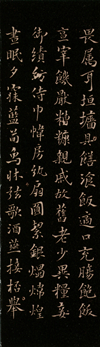 畏属耳垣墙具膳飡飯適口充腸飽飫
烹宰饑厭糟糠親戚故舊老少異糧妾
御績紡侍巾帷房紈扇圓潔銀燭煒煌
晝眠夕寐藍筍象牀弦歌酒讌接杯舉